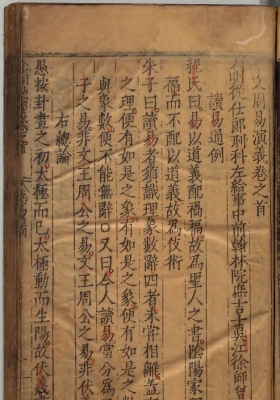 今文周易演義卷之首
徵仕郎刑科左給事中前翰林院庶吉士吳江徐師曾
讀易通例
程氏曰易以道義配禍福故為聖人之書陰陽家
福而不配以道義故為伎術
朱子曰讀易者須識理象數辭四者未嘗相離蓋
之理便有如是之象有如是之象便有如是之
與象數便不能無辭○又曰今人讀易當分為
子之易非文王周公之易文王周公之易非伏
右總論
愚按卦畫之初太極而已太極動而生陽故伏羲